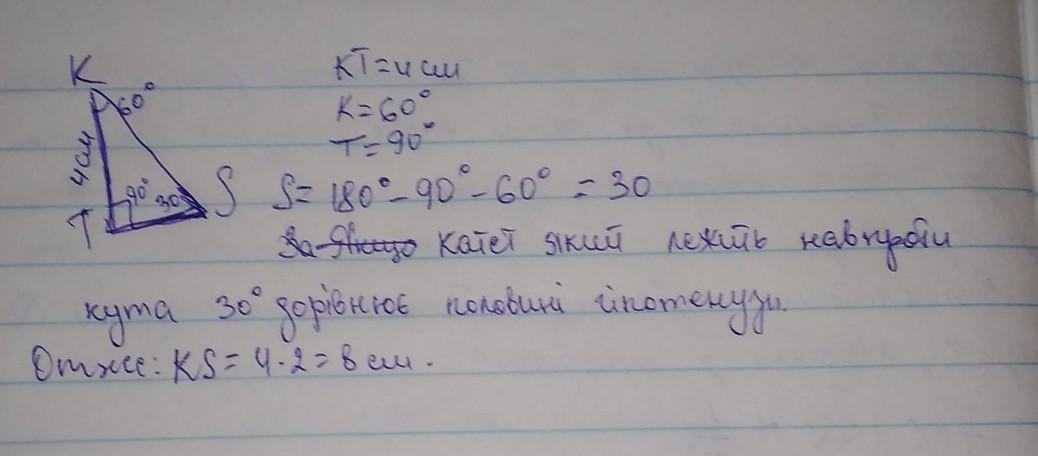 K
60°
4 см
90°
30
T
S
KT=4 см
K=60°
T=90°
S=180°-90°-60°=30
За Якщо катет який лежить навпроти
кута 30° дорівнює половині гіпотенузи.
Отже: KS=4·2=8 см.